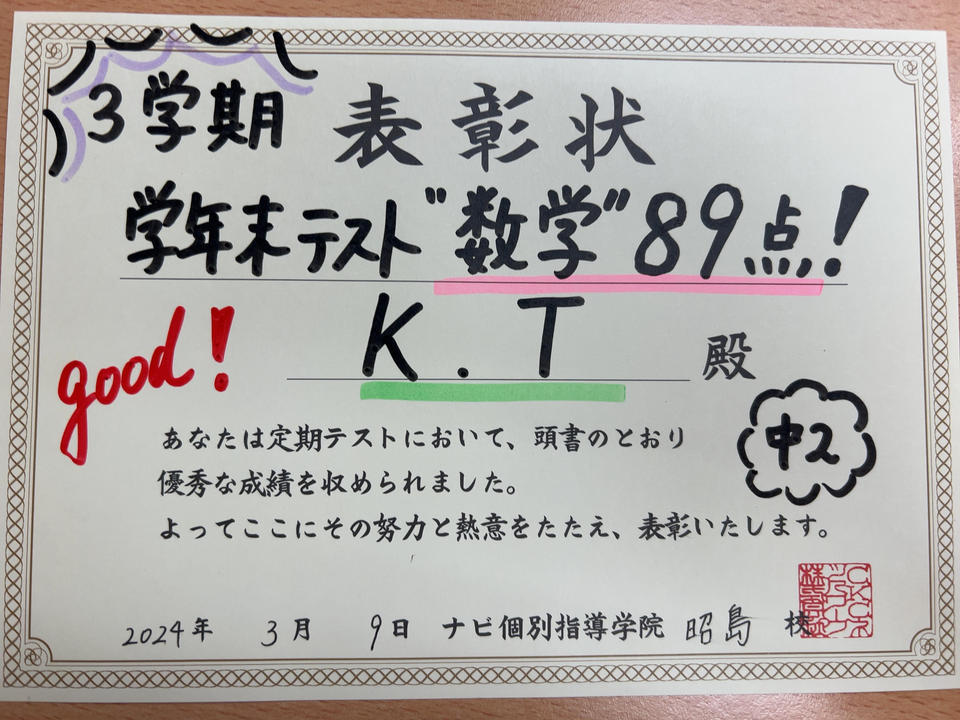 3学期
表彰状
学年末テスト"数学"89点!
good!
K.T 殿
中2
あなたは定期テストにおいて、頭書のとおり
優秀な成績を収められました。
よってここにその努力と熱意をたたえ、表彰いたします。
2024年 3月 9日 ナビ個別指導学院 昭島 校